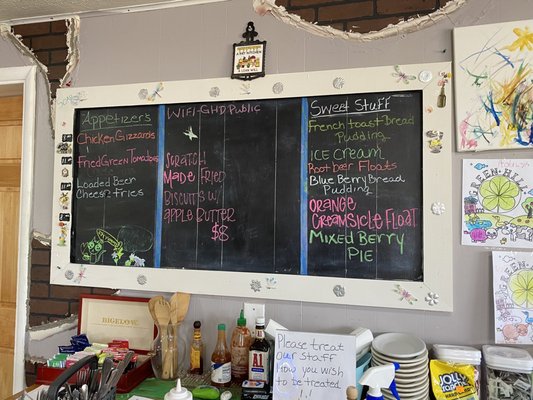 Appetizers
Chicken Gizzards
Fried Green Tomatoes
Loaded Beer
Cheese Fries
WIFI-GHD Public
Scratch
Made Fried
Biscuits w/
Apple Butter
$8
Sweet Stuff
French toast Bread
Pudding
ICE CREAM
Root beer Floats
Blue Berry Bread
Pudding
ORANGE
CREAMSICLE FLOAT
Mixed Berry
Pie
BIGELOW
A1
Please treat
our staff
How you wish
to be treated!
Jolly